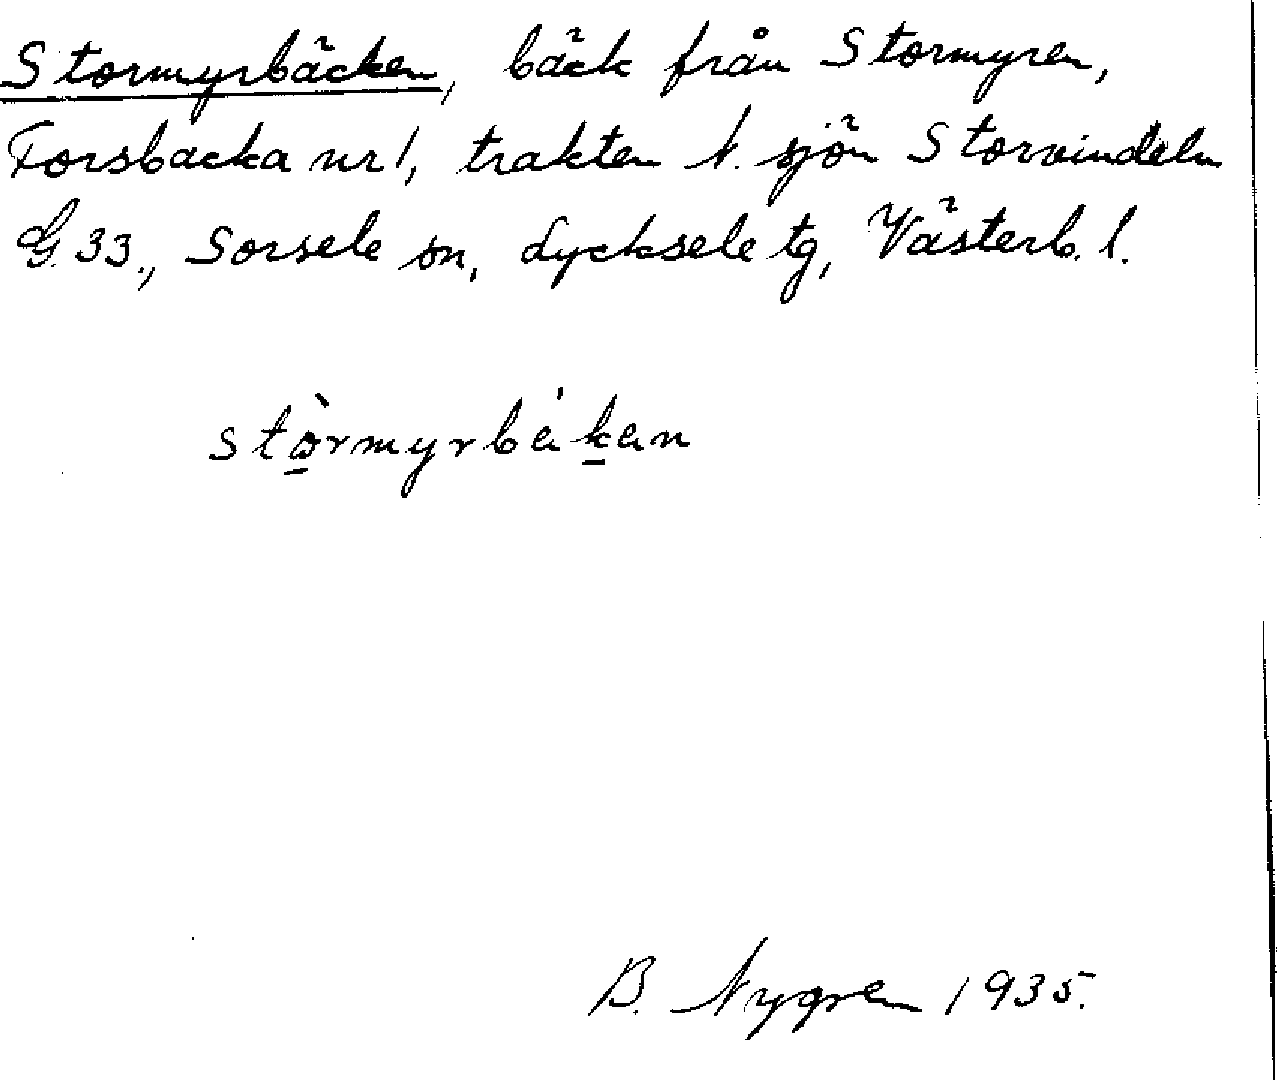 Stormyrbäcken, bäck från Stormyren,
Forsbacka nr 1, trakten N. sjön Storvindeln
G. 33., Sorsele sn, Lycksele tg, Västerb. l.
stò̱rmyrbék̲en
B. Nygren 1935.